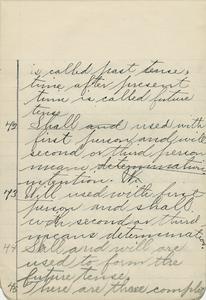 is called past tense,
time after present
time is called future
tense
43 Shall and used with
first person and will
second or third person
means determination
43 Will used with first
person and shall
with second or third
means determination.
44 Shall and will are
used to form the
future tense.
45 There are three